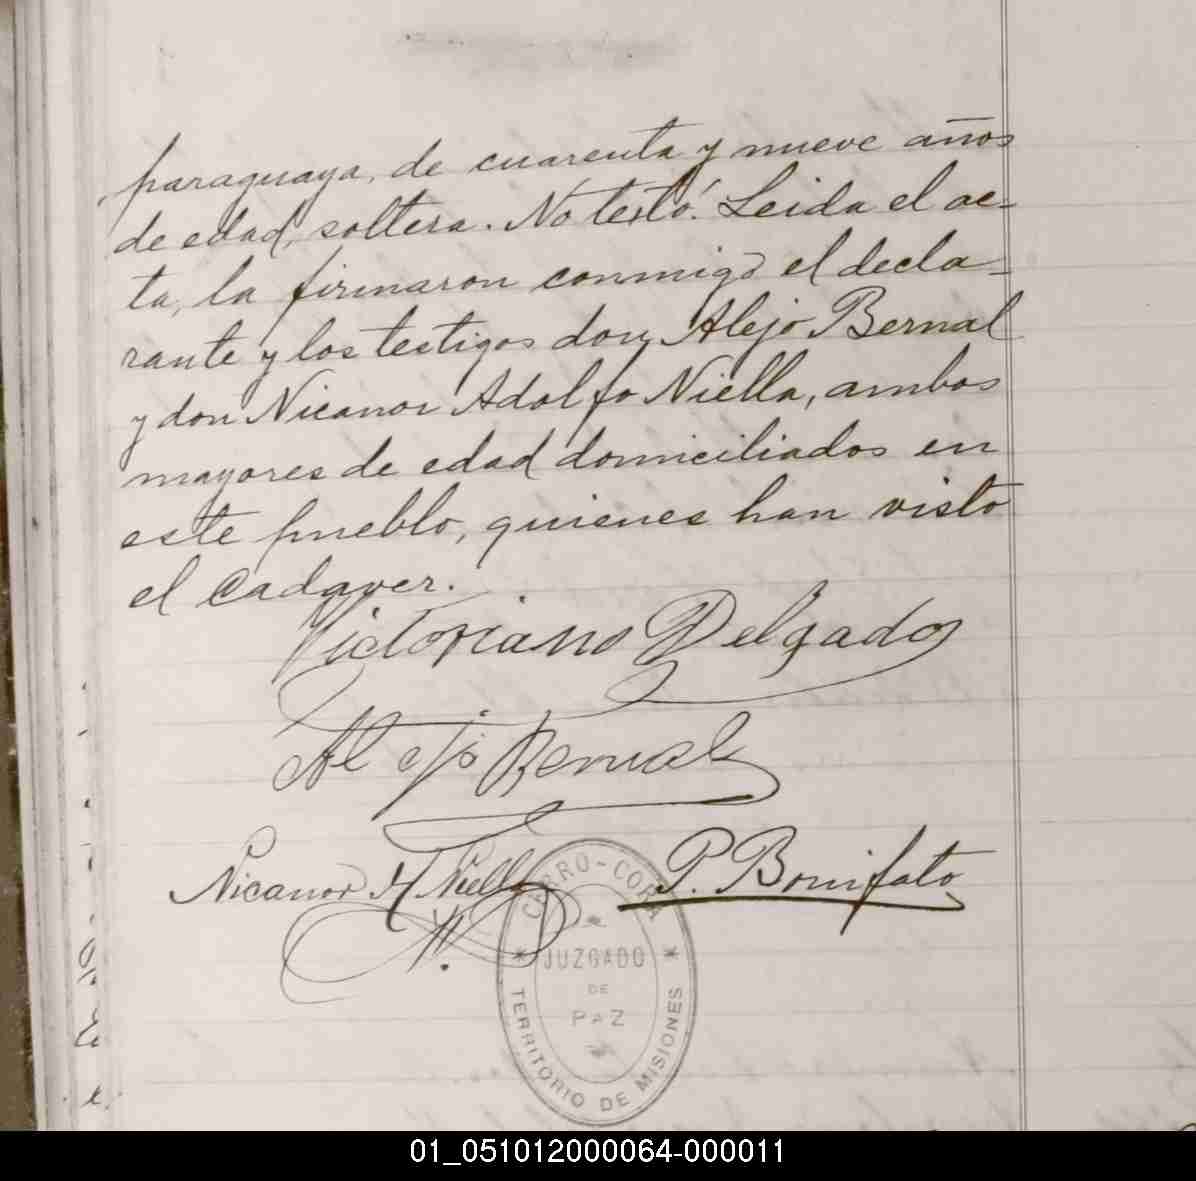 paraguaya, de cuarenta y nueve años
de edad, soltera. No testó. Leida el ac-
ta, la firmaron conmigo el decla-
rante y los testigos don Alejo Bernal
y don Nicanor Adolfo Niella, ambos
mayores de edad domiciliados en
este pueblo, quienes han visto
el cadaver.
Victoriano Delgado
Alejo Bernal
Nicanor A Niella
P. Bonifato
CERRO-CORA
JUZGADO
DE
PAZ
TERRITORIO DE MISIONES
01_051012000064-000011